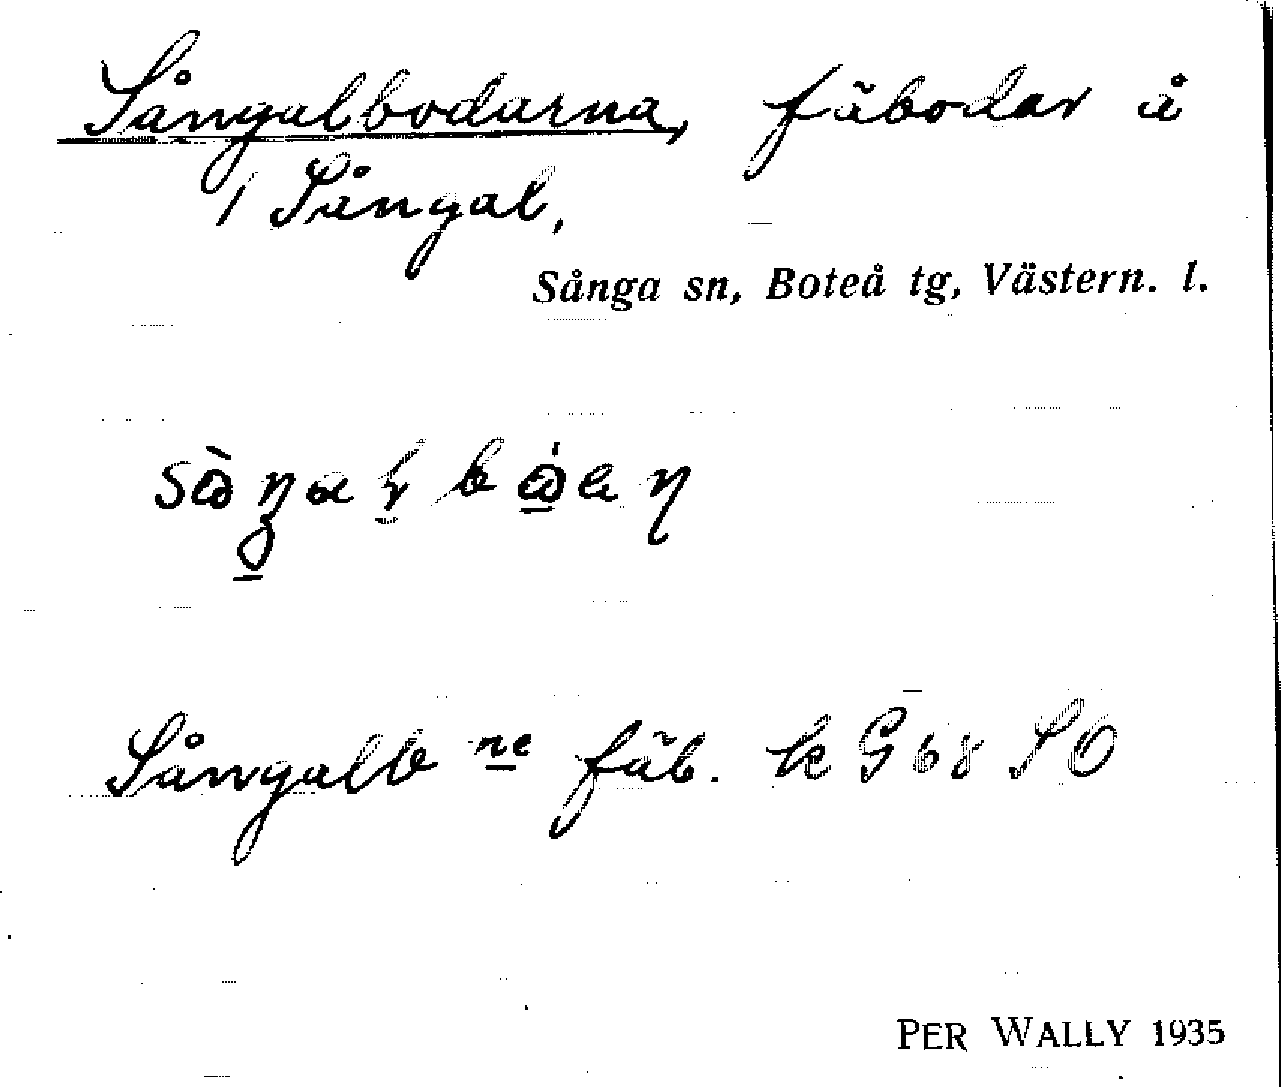 Sångalbodarna, fäbodar å
1 Sångal,
Sånga sn, Boteå tg, Västern. l.
Sångalb ne fäb. k G 68 SO
PER WALLY 1935